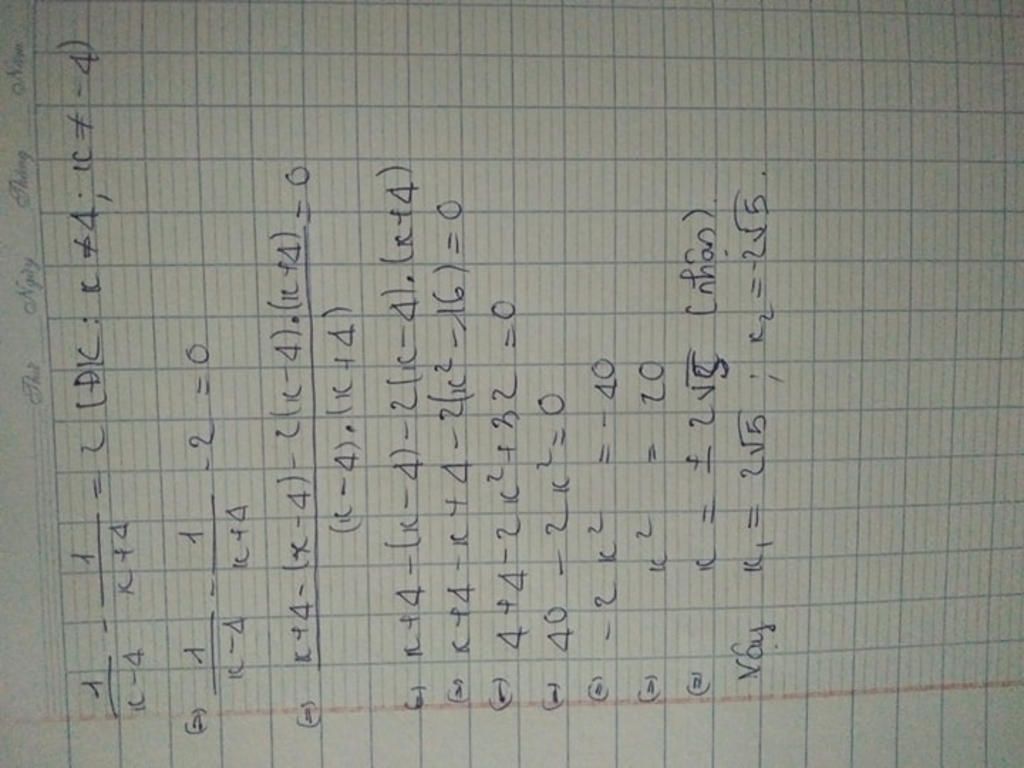 Thứ Ngày Tháng Năm
1/(x-4) - 1/(x+4) = 2 (ĐK: x ≠ 4; x ≠ -4)
(=) 1/(x-4) - 1/(x+4) - 2 = 0
(=) (x+4-(x-4)-2(x-4).(x+4))/((x-4).(x+4)) = 0
(=) x+4-(x-4)-2(x-4).(x+4)
(=) x+4-x+4-2(x²-16)=0
(=) 4+4-2x²+32=0
(=) 40-2x²=0
(=) -2x² = -40
(=) x² = 20
(=) x = ±2√5 (nhận)
Vậy x₁ = 2√5 ; x₂ = -2√5.